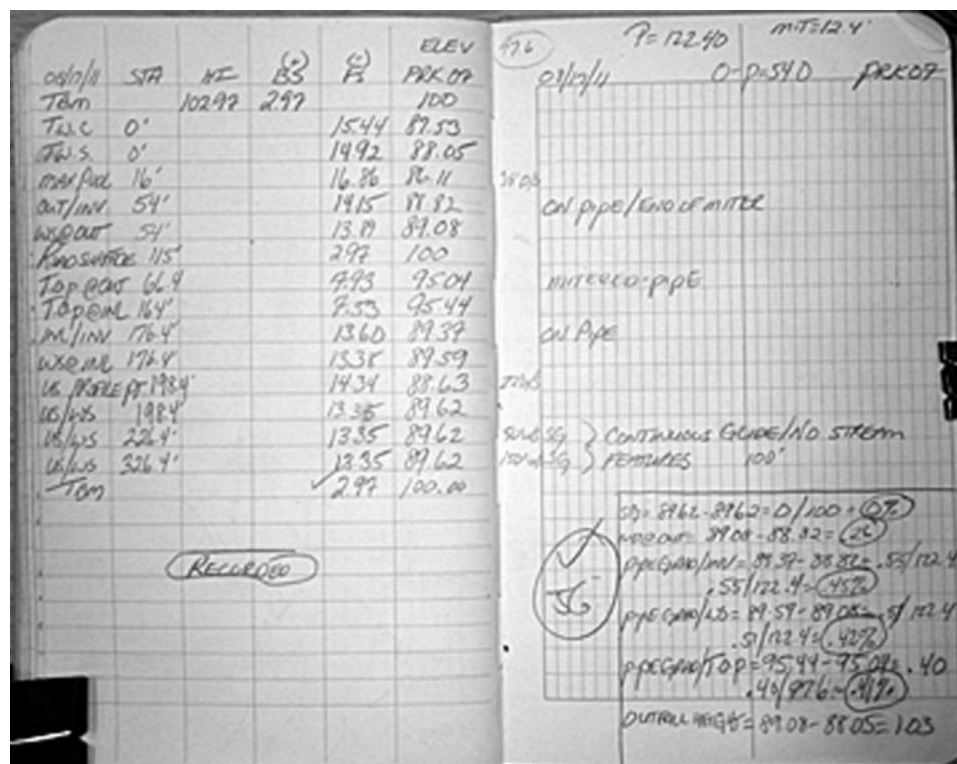 ELEV
08/17/11 STA HI (+) BS (-) FS PRK07
TBM 102.97 2.97 100
T.W.C 0' 15.44 87.53
T.W.S. 0' 14.92 88.05
MAX POOL 16' 16.86 86.11
OUT/INV 54' 14.15 88.82
WS@OUT 54' 13.89 89.08
ROADSURFACE 115' 2.97 100
TOP@OUT 66.4 7.93 95.04
TOP@INL 164' 7.53 95.44
INL/INV 176.4' 13.60 89.37
WS@INL 176.4' 13.38 89.59
US PROFILE PT 198.4' 14.34 88.63
US/WS 198.4' 13.35 89.62
US/WS 226.4' 13.35 89.62
US/WS 326.4' 13.35 89.62
TBM ✓ 2.97 100.00
RECORDED
P=122.40 MIT=12.4'
08/17/11 O-P=54.0 PRK07
ON PIPE/END OF MITER
MITERED-PIPE
ON PIPE
} CONTINUOUS GLIDE/NO STREAM
} FEATURES 100'
89.62-89.62=0/100=0%
89.08-88.82=.26
PIPEGRAD/INV=89.37-88.82=.55/122.4
.55/122.4=.45%
PIPEGRAD/WS=89.59-89.08=.51/122.4
.51/122.4=.42%
PIPEGRAD/TOP=95.44-95.04=.40
.40/97.6=.41%
OUTFALL HEIGHT=89.08-88.05=1.03
✓
JG